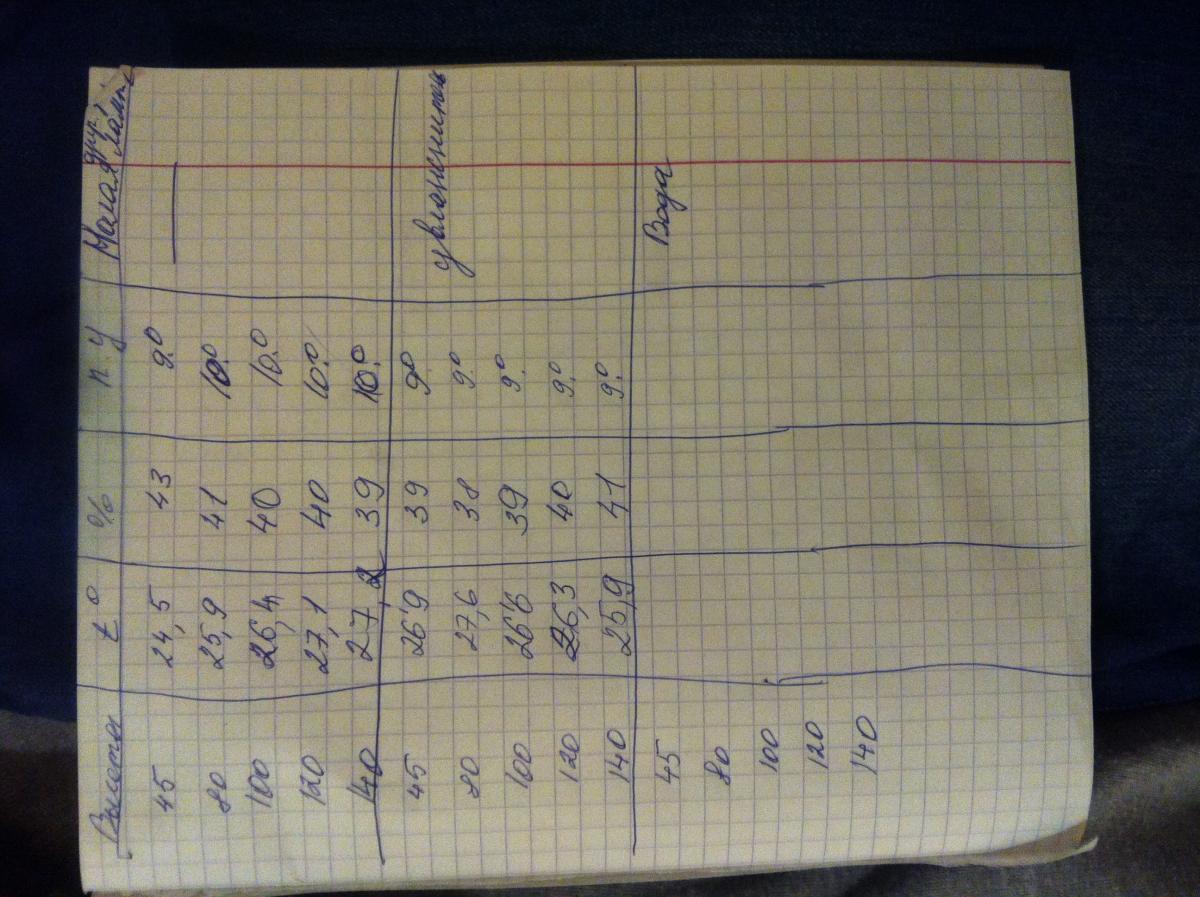 Высота t° % п.у Малая груп. Лампа
45 24,5 43 9.0 —
80 25,9 41 10.0
100 26,4 40 10.0
120 27,1 40 10.0
140 27,2 39 10.0
45 26,9 39 9.0 увлажнитель
80 27,6 38 9.0
100 26,6 39 9.0
120 26,3 40 9.0
140 25,9 41 9.0
45 Вода
80
100
120
140